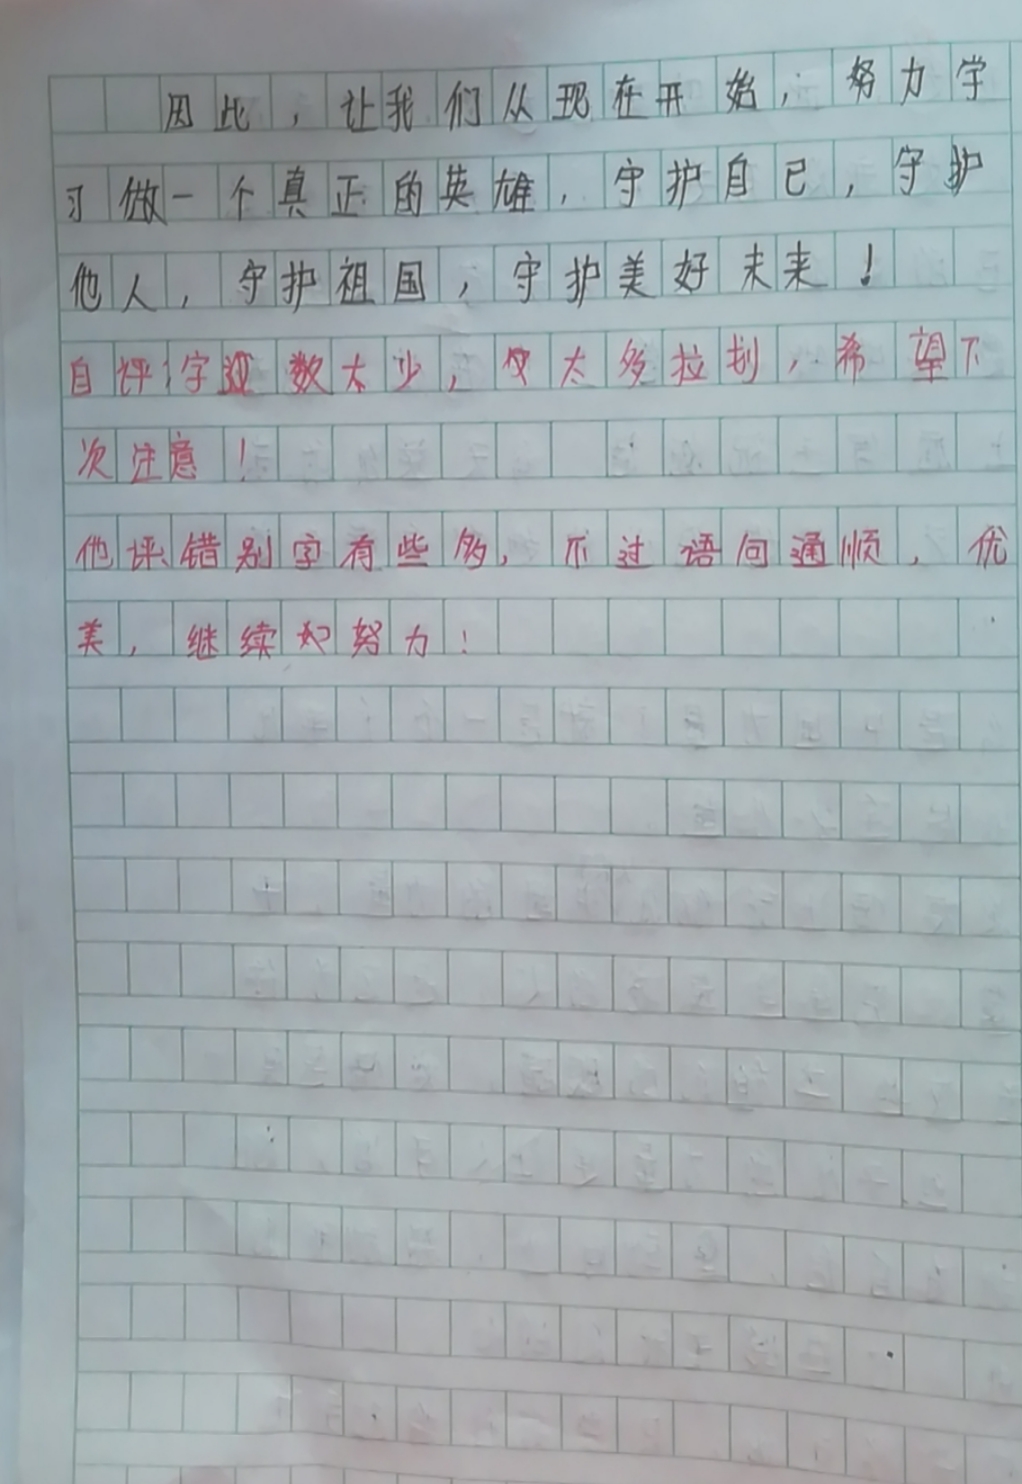 因此，让我们从现在开始，努力学
习做一个真正的英雄，守护自己，守护
他人，守护祖国，守护美好未来！
自评：字数太少，太多拉划，希望下
次注意！
他评：错别字有些多，不过语句通顺，优
美，继续加努力！